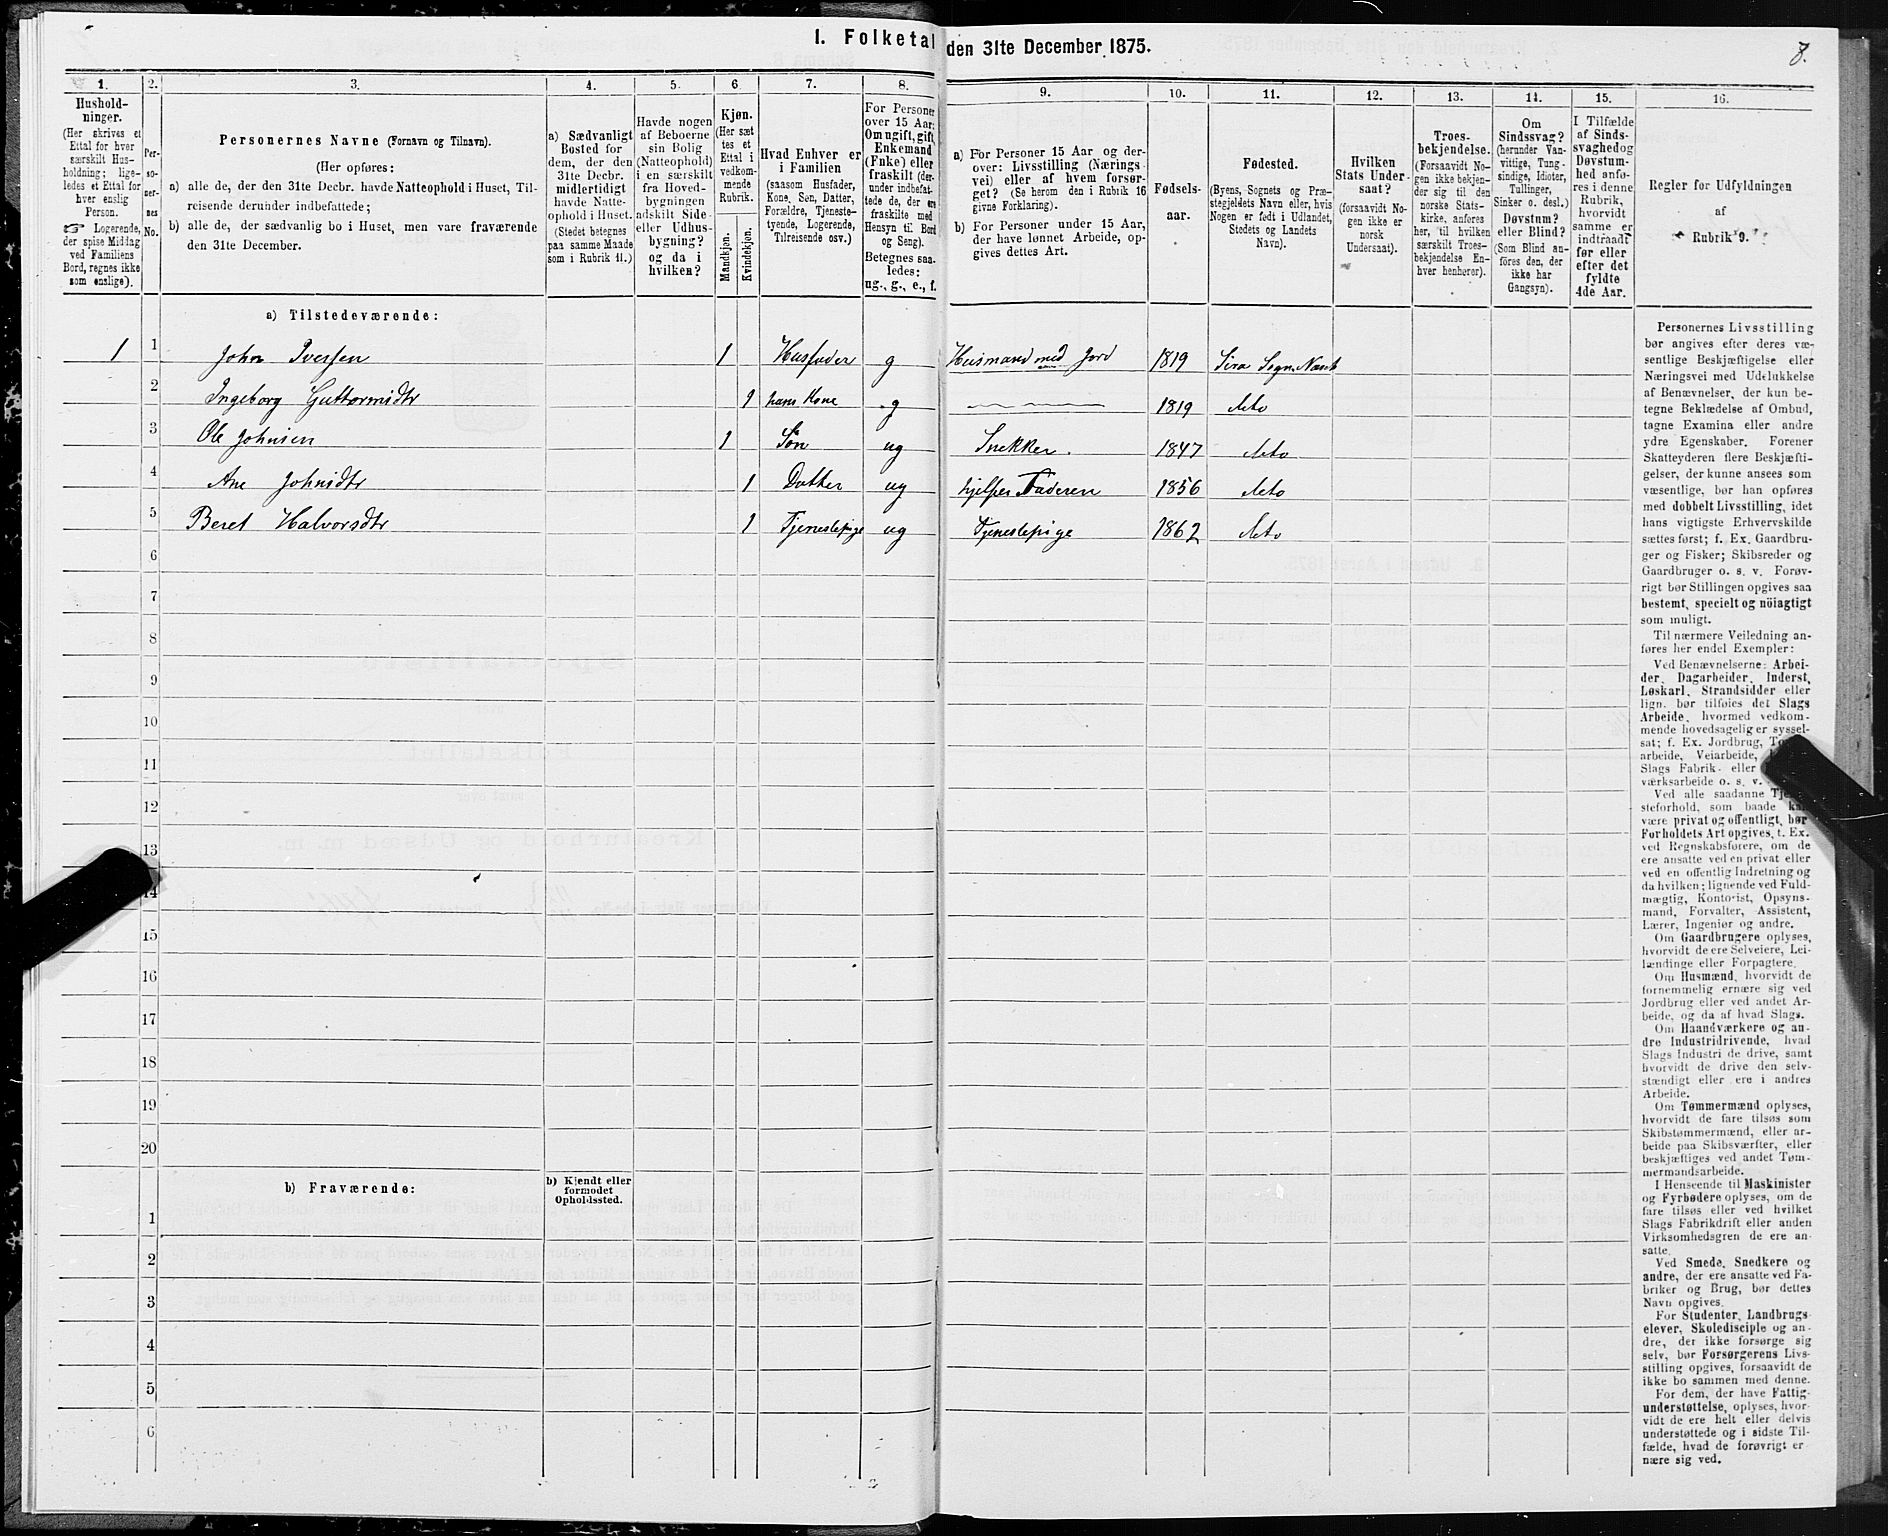 I. Folketal den 31te December 1875.
8.
1.
2.
3.
4.
5.
6
7.
8.
9.
10.
11.
12.
13.
14.
15.
16.
Hushold-
ninger.
(Her skrives et
Ettal for hver
særskilt Hus-
holdning; lige-
ledes et Ettal for
hver enslig
Person.
☞ Logerende,
der spise Middag
ved Familiens
Bord, regnes ikke
som enslige).
Per-
so-
ner-
nes
No.
Personernes Navne (Fornavn og Tilnavn).
(Her opføres:
a) alle de, der den 31te Decbr. havde Natteophold i Huset, Til-
reisende derunder indbefattede;
b) alle de, der sædvanlig bo i Huset, men vare fraværende
den 31te December.
a) Sædvanligt
Bosted for
dem, der den
31te Decbr.
midlertidigt
havde Natte-
ophold i Huset.
(Stedet betegnes
paa samme Maade
som i Rubrik 11.)
Havde nogen
af Beboerne
sin Bolig
(Natteophold)
i en særskilt
fra Hoved-
bygningen
adskilt Side-
eller Udhus-
bygning?
og da i
hvilken?
Kjøn.
(Her sæt-
tes et
Ettal i
vedkom-
mende
Rubrik.
Mandkjøn.
Kvindekjøn.
Hvad Enhver er
i Familien
(saasom Husfader,
Kone, Søn, Datter,
Forældre, Tjeneste-
tyende, Logerende,
Tilreisende osv.)
For Personer
over 15 Aar:
Om ugift, gift,
Enkemand
(Enke) eller
fraskilt (der-
under indbefat-
tede de, der ere
fraskilte med
Hensyn til Bord
og Seng).
Betegnes saa-
ledes:
ug., g., e., f.
a) For Personer 15 Aar og der-
over: Livsstilling (Nærings-
vei) eller af hvem forsør-
get? (Se herom den i Rubrik 16
givne Forklaring).
b) For Personer under 15 Aar,
der have lønnet Arbeide, op-
gives dettes Art.
Fødsels-
aar.
Fødested.
(Byens, Sognets og Præ-
stegjeldets Navn eller, hvis
Nogen er født i Udlandet,
Stedets og Landets
Navn).
Hvilken
Stats Under-
saat?
(forsaavidt No-
gen ikke er
norsk
Undersaat).
Troes-
bekjendelse.
(Forsaavidt No-
gen ikke bekjen-
der sig til den
norske Stats-
kirke, anføres
her, til hvilken
særskilt Troes-
bekjendelse En-
hver henhører).
Om
Sindssvag?
(herunder Van-
vittige, Tung-
sindige, Idioter,
Tullinger,
Sinker o. desl.)
Døvstum?
eller Blind?
(Som Blind an-
föres den, der
ikke har
Gangsyn).
I Tilfælde
af Sinds-
svaghed og
Døvstum-
hed anfø-
res i denne
Rubrik,
hvorvidt
samme er
indtraadt
før eller
efter det
fyldte
4de Aar.
Regler for Udfyldningen
af
Rubrik 9.
a) Tilstedeværende:
1 1 John Iversen 1 Husfader g Husmand med Jord 1819 Sira Sogn
2 Ingeborg Guttormsdtr 1 hans Kone g 1819 deto
3 Ole Johnsen 1 Søn ug Snekker. 1847 deto
4 Ane Johnsdtr 1 Datter ug hjelper Faderen 1856 deto
5 Beret Halvorsdtr 1 Tjenestepige ug Tjenestepige 1862 deto
6
7
8
9
10
11
12
13
14
15
16
17
18
19
20
b) Fraværende:
b) Kjendt eller
formodet
Opholdssted.
1
2
3
4
5
6
Personernes Livsstilling
bør angives efter deres væ-
sentlige Beskjæftigelse eller
Næringsvei med Udelukkelse
af Benævnelser, der kun be-
tegne Beklædelse af Ombud,
tagne Examina eller andre
ydre Egenskaber. Forener
Skatteyderen flere Beskjæfti-
gelser, der kunne ansees som
væsentlige, bør han opføres
med dobbelt Livsstilling, idet
hans vigtigste Erhvervskilde
sættes først; f. Ex. Gaardbru-
ger og Fisker; Skibsreder og
Gaardbruger o. s. v. Forøv-
rigt bør Stillingen opgives saa
bestemt, specielt og nöiagtigt
som muligt.
Til nærmere Veiledning an-
føres her endel Exempler:
Ved Benævnelserne: Arbei-
der, Dagarbeider, Inderst,
Løskarl, Strandsidder eller
lign. bør tilføies det Slags
Arbeide, hvormed vedkom-
mende hovedsagelig er syssel-
sat; f. Ex. Jordbrug,
arbeide, Veiarbeide,
Slags Fabrik- eller
værksarbeide o. s. v.
Ved alle saadanne
steforhold, som baade
være privat og offentligt, bør
Forholdets Art opgives, t. Ex.
ved Regnskabsførere, om de
ere ansatte ved en privat eller
ved en offentlig Indretning og
da hvilken; lignende ved Fuld-
mægtig, Kontorist, Opsyns-
mand, Forvalter, Assistent,
Lærer, Ingeniør og andre.
Om Gaardbrugere oplyses,
hvorvidt de ere Selveiere, Lei-
lændinge eller Forpagtere.
Om Husmænd, hvorvidt de
fornemmelig ernære sig ved
Jordbrug eller ved andet Ar-
beide, og da af hvad Slags.
Om Haandværkere og an-
dre Industridrivende, hvad
Slags Industri de drive, samt
hvorvidt de drive den selv-
stændigt eller ere i andres
Arbeide.
Om Tømmermænd oplyses,
hvorvidt de fare tilsøs som
Skibstømmermænd, eller ar-
beide paa Skibsværfter, eller
beskjæftiges ved andet Tøm-
mermandsarbeide.
I Henseende til Maskinister
og Fyrbødere oplyses, om de
fare tilsøs eller ved hvilket
Slags Fabrikdrift eller anden
Virksomhedsgren de ere an-
satte.
Ved Smede, Snedkere og
andre, der ere ansatte ved Fa-
briker og Brug, bør dettes
Navn opgives.
For Studenter, Landbrugs-
elever, Skoledisciple og an-
dre, der ikke forsørge sig
selv, bør Forsørgerens Livs-
stilling opgives, forsaavidt de
ikke bo sammen med denne.
For dem, der have Fattig-
understøttelse, oplyses, hvor-
vidt de ere helt eller delvis
understøttede og i sidste Til-
fælde, hvad de forøvrigt er
nære sig ved.